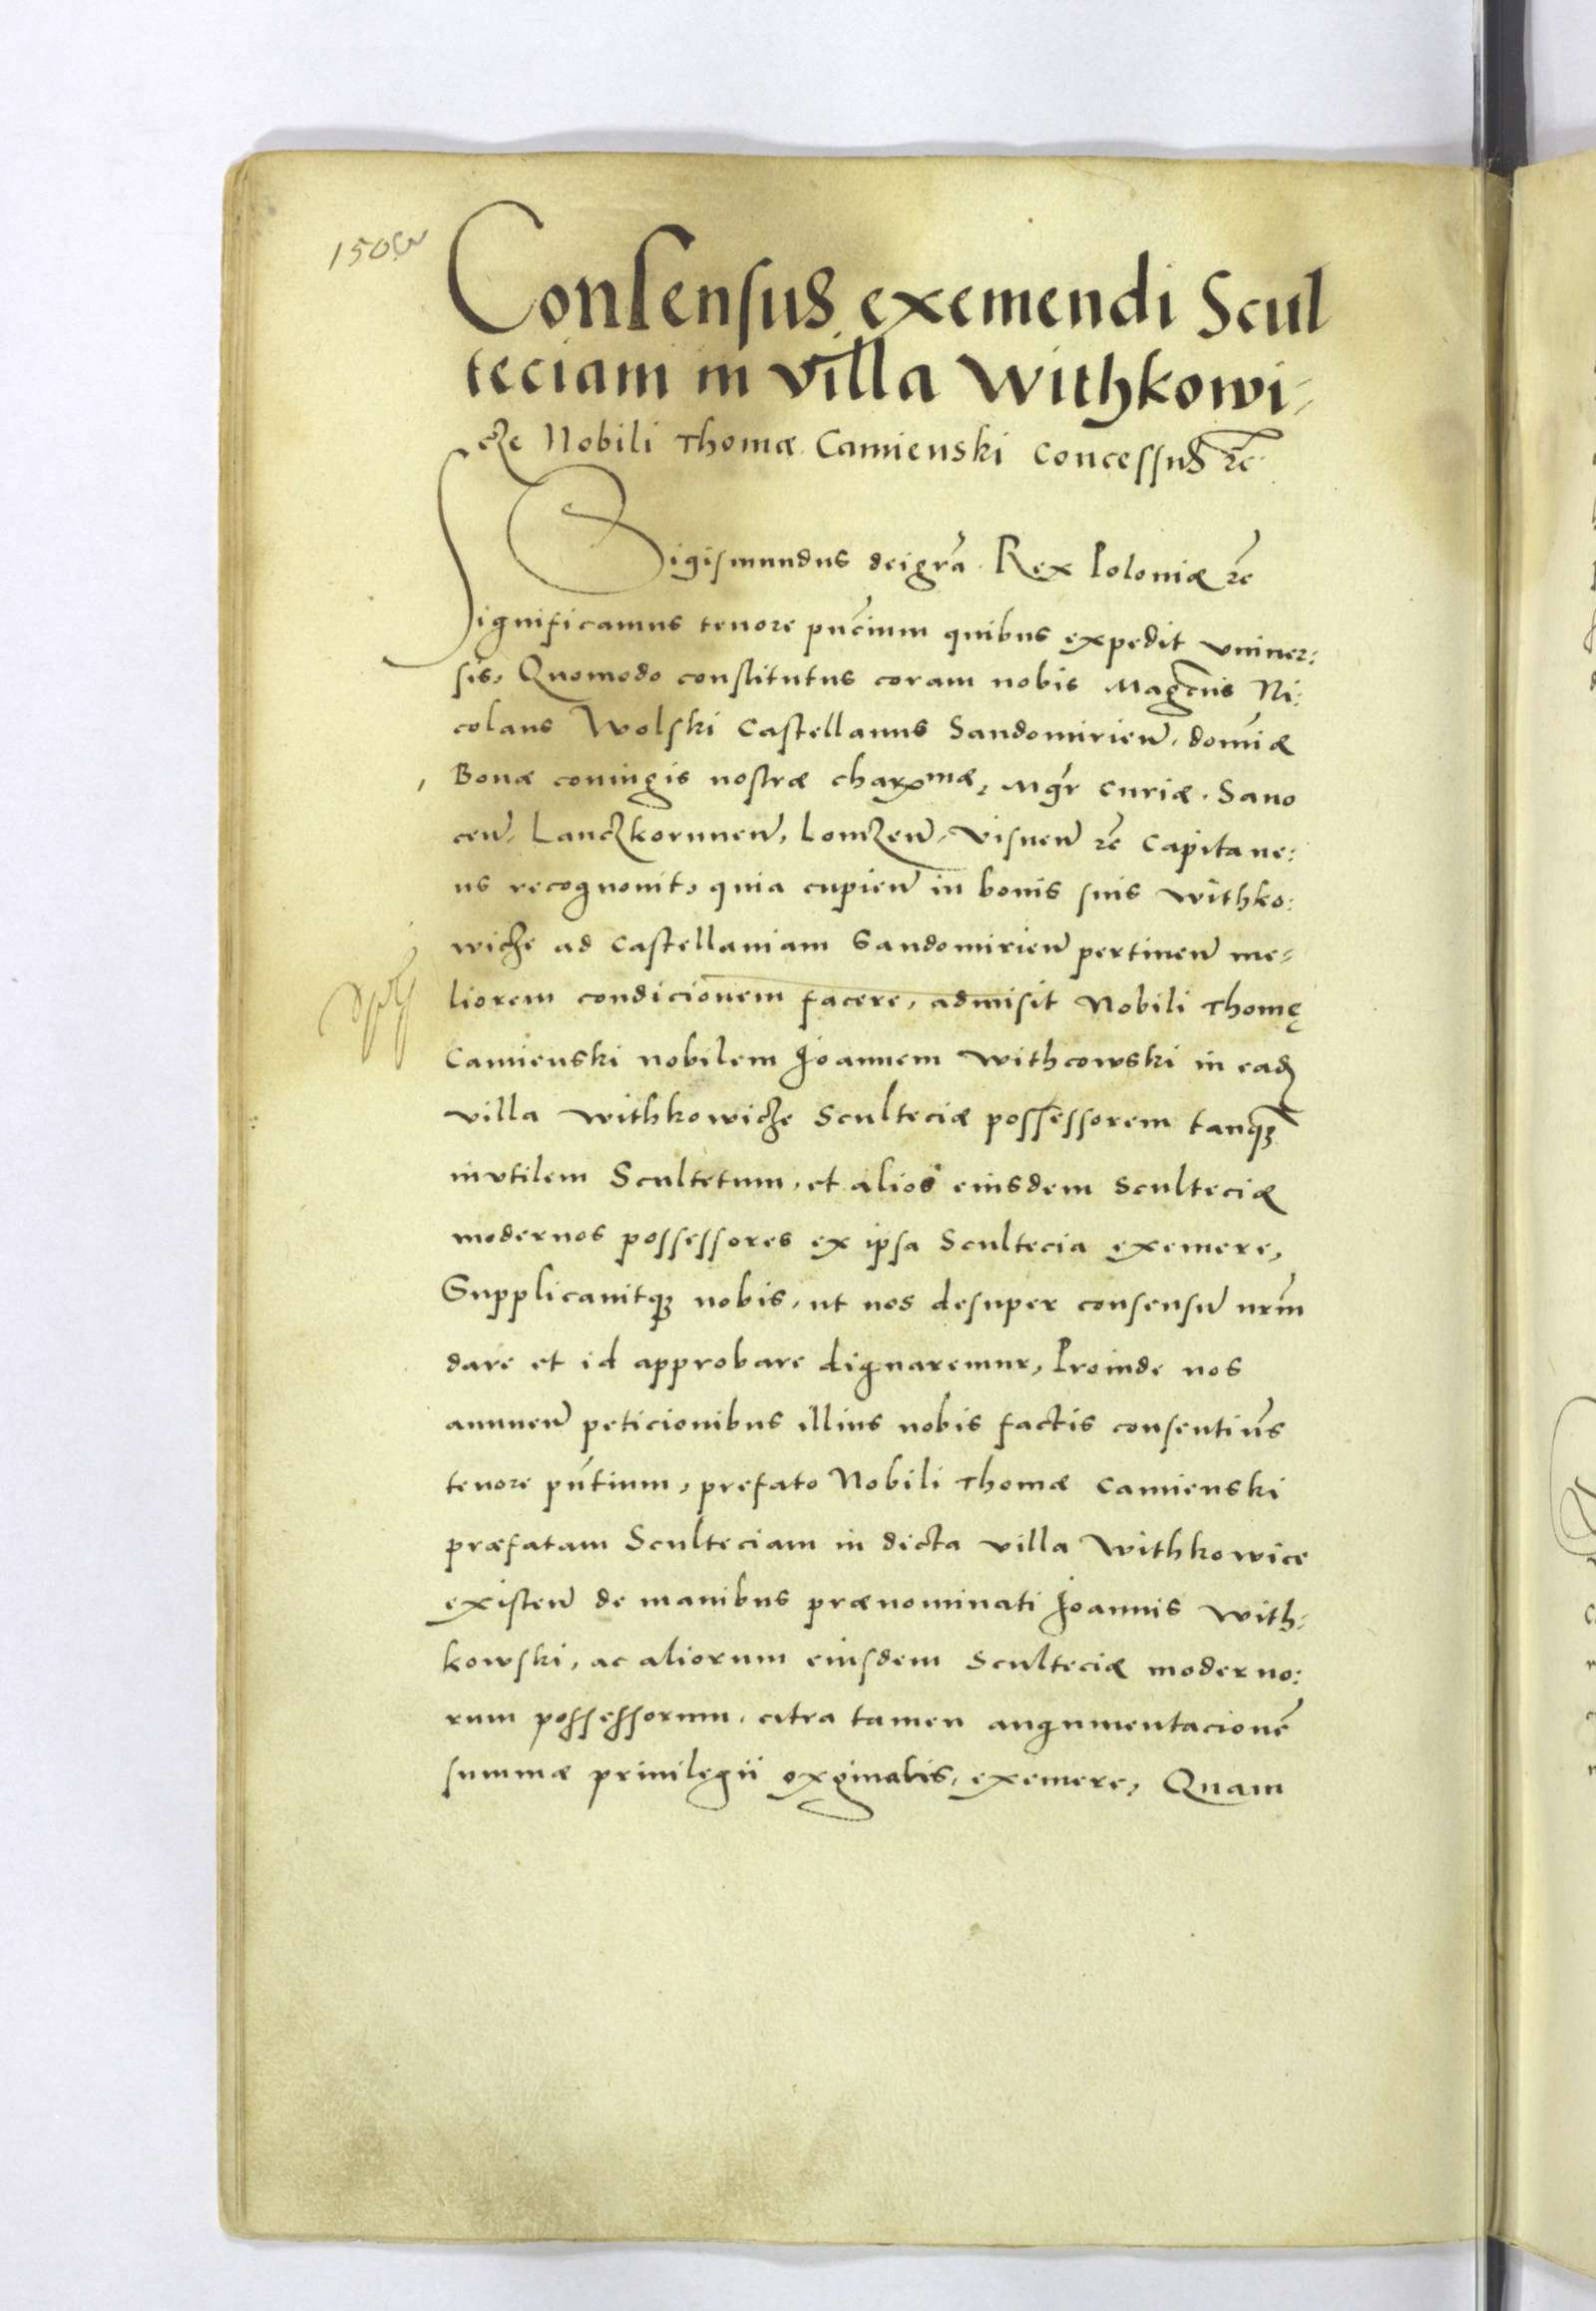 Consensus exemendi Scul
teciam in villa Withkowi-
cze Nobili Thomæ Camienski Concessus etc
Sigismundus dei gra. Rex Poloniæ etc
Significamus tenore pncium quibus expedit vniuer:
sis, Quomodo constitutus coram nobis Magcus Ni:
colaus Wolski Castellanus Sandomirien. domiæ
Bonæ coniugis nostræ charmæ, Mgr Curiæ. Sano
cen, Lanczkorunen, Lomzen, Visnen etc Capitane:
us recognouit, quia cupien in bonis suis Withko:
wicze ad Castellaniam Sandomirien pertinen me-
liorem condicionem facere, admisit Nobili Thomę
Camienski nobilem Joannem Withcowski in ead
villa Withkowicze Sculteciæ possessorem tanq
invtilem Scultetum, et alios eiusdem Sculteciæ
modernos possessores ex ipsa Scultecia exemere,
Supplicauitq nobis, ut nos desuper consensu nrm
dare et id approbare dignaremur, Proinde nos
annuen peticionibus illius nobis factis consentius
tenore pntium, prefato Nobili Thomæ Camienski
præfatam Sculteciam in dicta villa Withkowice
existen de manibus prænominati Joannis With-
kowski, ac aliorum eiusdem Sculteciæ moderno:
rum possessorum, citra tamen augumentacione
summæ priuilegii originalis, exemere, Quam